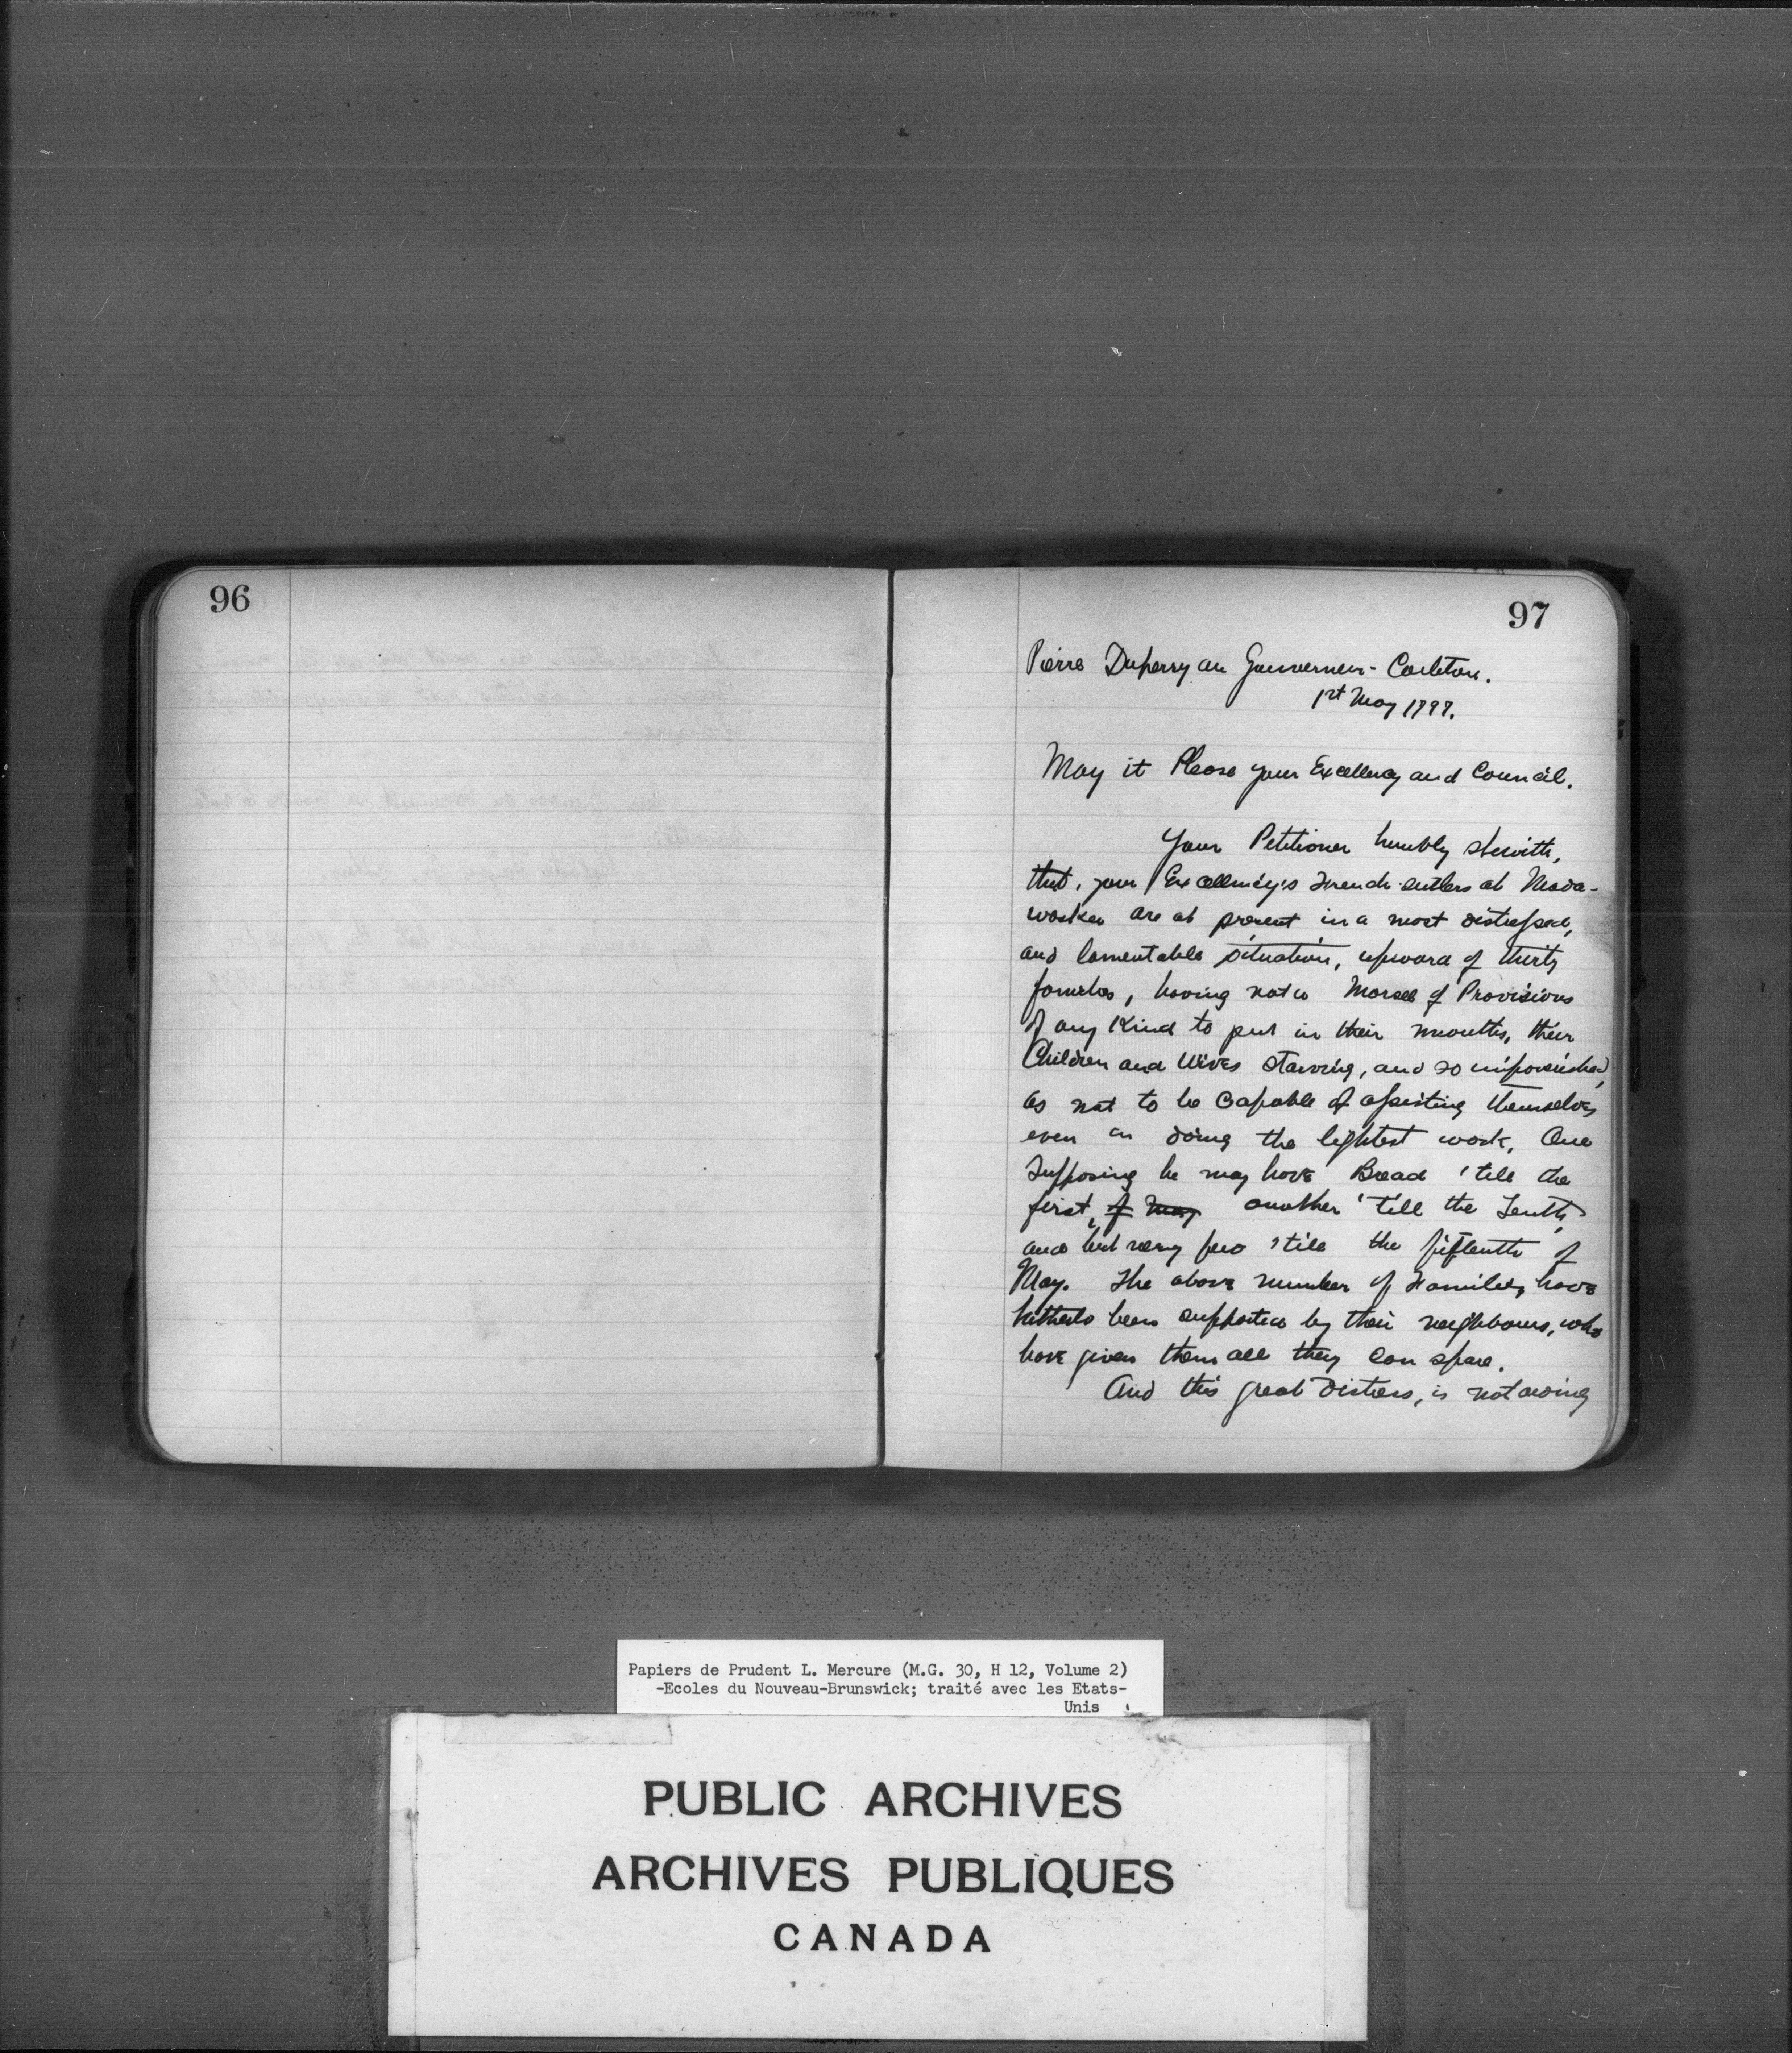 96
97
Pierre Duperry au Gouverneur - Carleton.
1st May 1797.
May it Please your Excellency and Council.
Your Petitioner humbly sheweth,
that, your Excellency's French settlers at Mada-
waska are at present in a most distressed,
and lamentable situation, upward of thirty
families, having not a Morsel of Provisions
of any Kind to put in their mouths, their
Children and Wives starving, and so impoverished,
as not to be Capable of assisting themselves
even in doing the lightest work, One
Supposing he may have Bread 'till the
first, of May another 'till the Tenth,
and but very few 'till the fifteenth of
May. The above number of Families, have
hitherto been supported by their neighbours, who
have given them all they can spare.
And this great Distress, is not owing
Papiers de Prudent L. Mercure (M.G. 30, H 12, Volume 2)
-Ecoles du Nouveau-Brunswick; traité avec les Etats-
Unis
PUBLIC ARCHIVES
ARCHIVES PUBLIQUES
CANADA